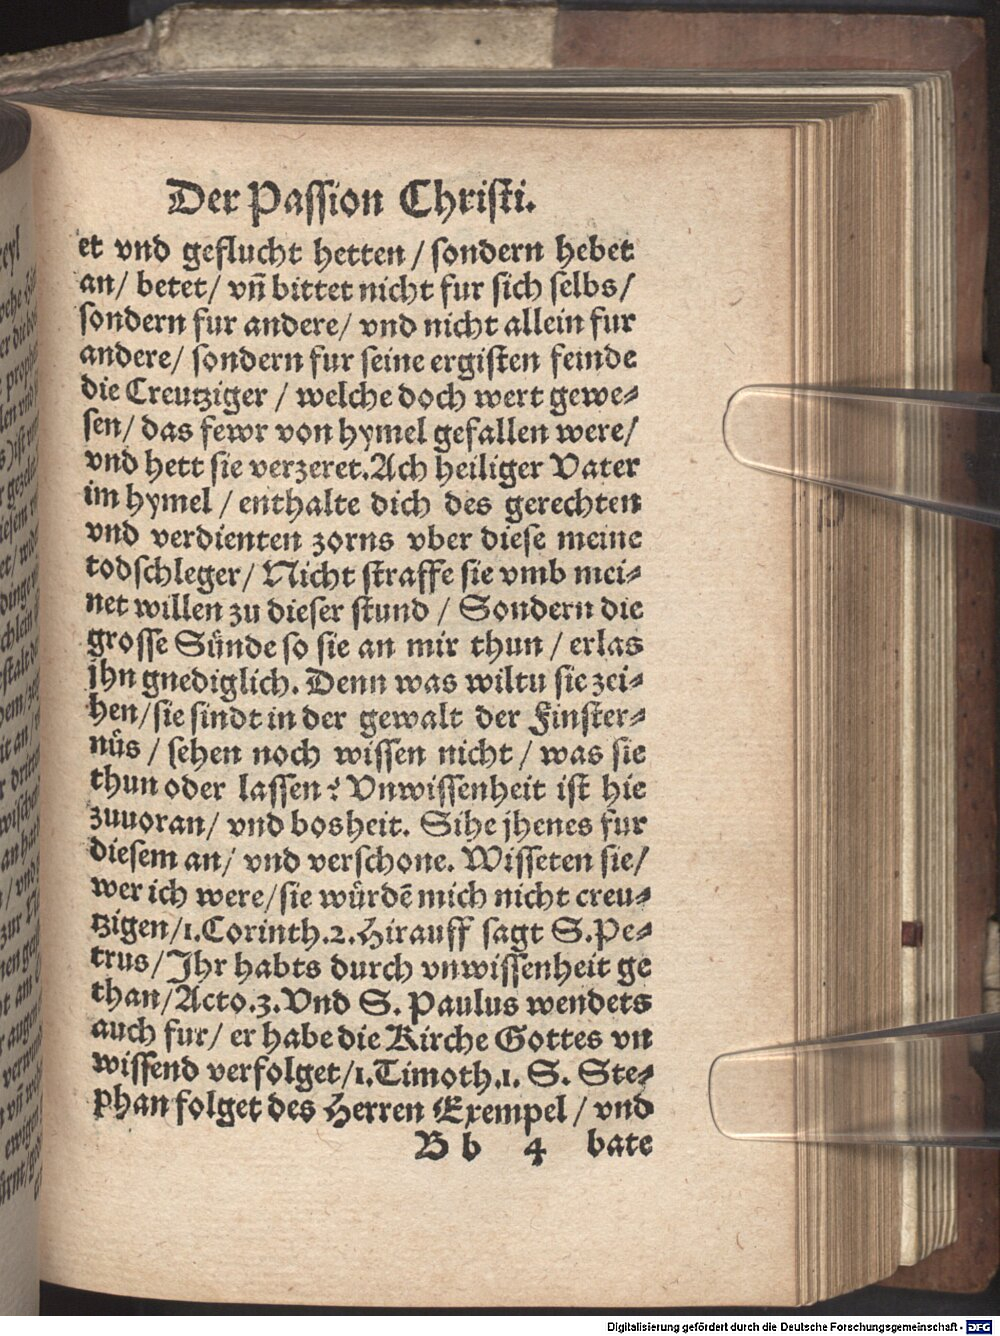 Der Passion Christi.
et vnd geflucht hetten / sondern hebet
an/ betet/ vñ bittet nicht fur sich selbs/
sondern fur andere/ vnd nicht allein fur
andere/ sondern fur seine ergisten feinde
die Creutziger / welche doch wert gewe⸗
sen/ das fewr von hymel gefallen were/
vnd hett sie verzeret. Ach heiliger Vater
im hymel / enthalte dich des gerechten
vnd verdienten zorns vber diese meine
todschleger/ Nicht straffe sie vmb mei⸗
net willen zu dieser stund / Sondern die
grosse Sünde so sie an mir thun / erlas
jhn gnediglich. Denn was wiltu sie zei⸗
hen/ sie sindt in der gewalt der Finster⸗
nüs / sehen noch wissen nicht / was sie
thun oder lassen? Vnwissenheit ist hie
zuuoran/ vnd bosheit. Sihe jhenes fur
diesem an/ vnd verschone. Wisseten sie/
wer ich were/ sie würdẽ mich nicht creu⸗
tzigen/ 1. Corinth. 2. Hirauff sagt S. Pe⸗
trus/ Jhr habts durch vnwissenheit ge
than/ Acto. 3. Vnd S. Paulus wendets
auch fur/ er habe die Kirche Gottes vn
wissend verfolget/ 1. Timoth. 1. S. Ste⸗
phan folget des Herren Exempel / vnd
B b 4 bate
Digitalisierung gefördert durch die Deutsche Forschungsgemeinschaft - DFG